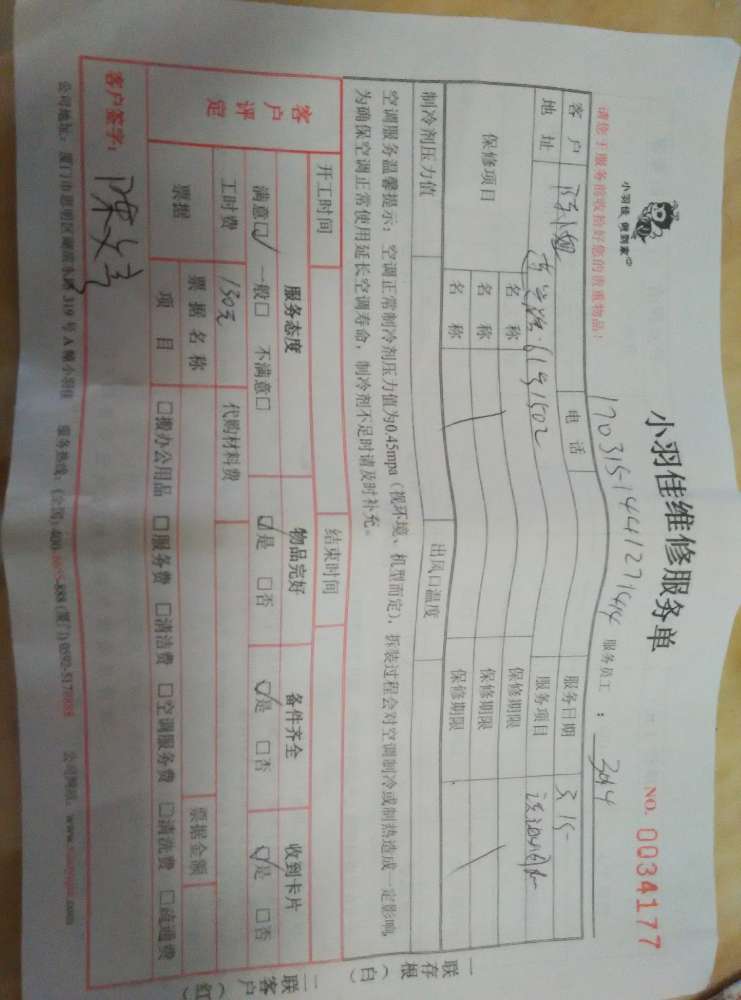 小羽佳 俩到家
小羽佳维修服务单
NO. 0034177
请您于服务前收拾好您的贵重物品!
170315-1441271444 服务员工:
客户 陈小姐 电话 服务日期 3.15
地址 服务项目
保修项目 名称 保修期限
名称 保修期限
名称 保修期限
制冷剂压力值 出风口温度
空调服务温馨提示:空调正常制冷剂压力值为0.45mpa(视环境、机型而定),拆装过程会对空调制冷或制热造成一定影响,
为确保空调正常使用延长空调寿命,制冷剂不足时请及时补充。
开工时间 结束时间
客户评定 服务态度 物品完好 备件齐全 收到卡片
满意☑ 一般□ 不满意□ ☑是 □否 ☑是 □否 ☑是 □否
工时费 150元 代购材料费
票据 票据名称 票据金额
项目 □搬办公用品 □服务费 □清洁费 □空调服务费 □清洗费 □疏通费
客户签字:
公司地址:厦门市思明区湖滨东路 319 号 A 幢小羽佳 服务热线:(全国) 公司网址:
一联存根(白)
二联客户(红)